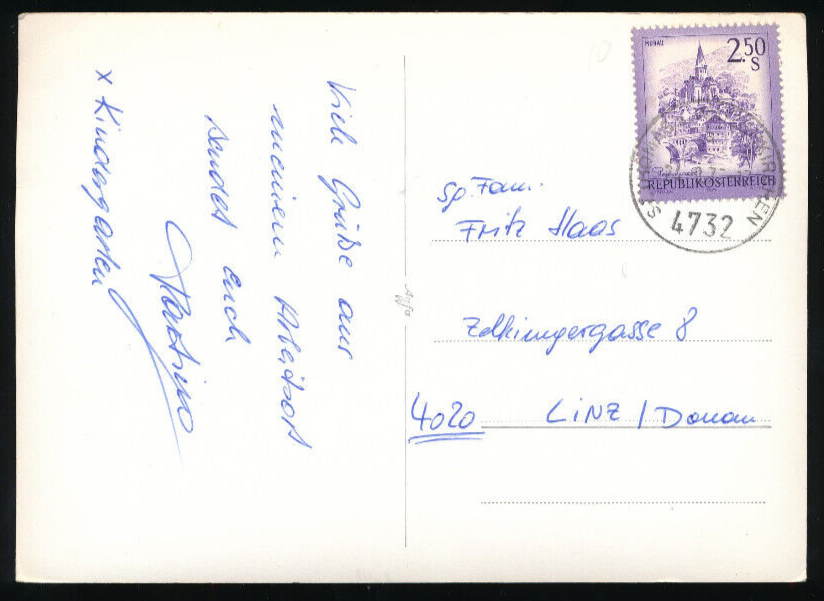 Viele Grüße aus
meinem Arbeitsort
sendet euch
x Kindergarten
MURAU
2.50
S
REPUBLIK ÖSTERREICH
4732
Sp. Fam.
Fritz Haas
Zelkingergasse 8
4020 LINZ / Donau